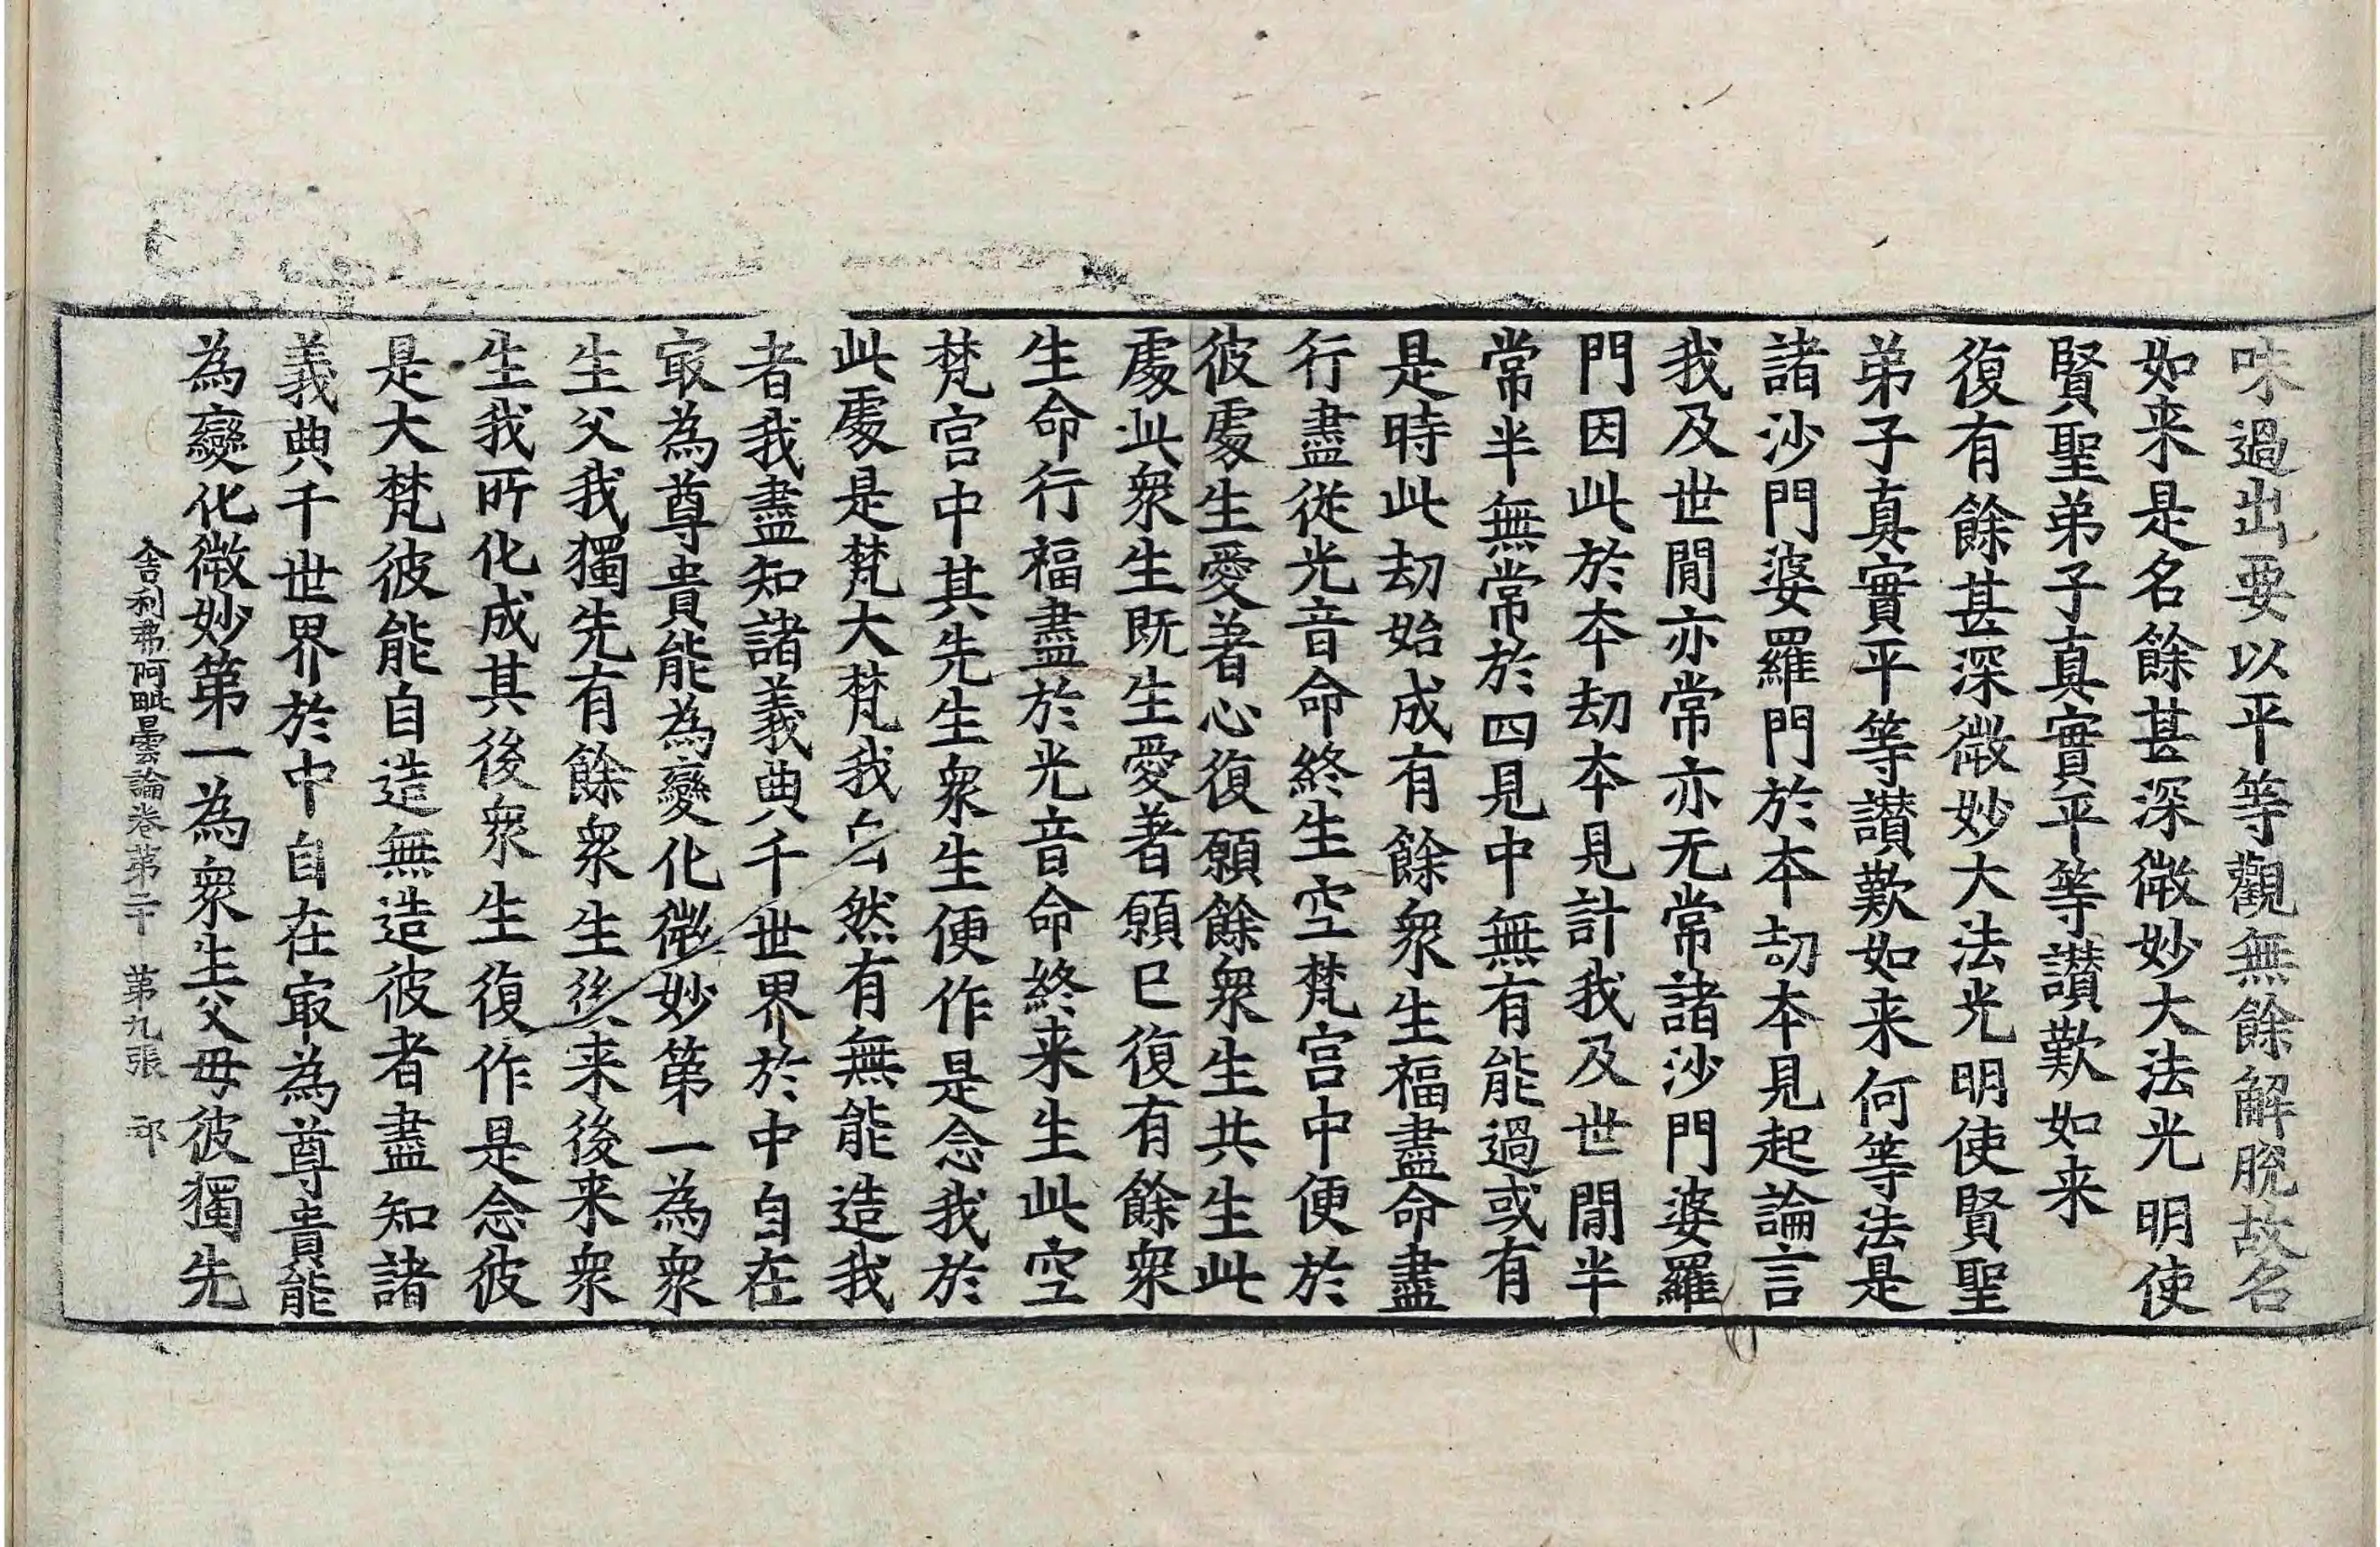 味過出要以平等觀無餘解脫故名
如来是名餘甚深微妙大法光明使
賢聖弟子真實平等讃歎如来
復有餘甚深微妙大法光明使賢聖
弟子真實平等讃歎如来何等法是
諸沙門婆羅門於本劫本見起論言
我及世間亦常亦无常諸沙門婆羅
門因此於本劫本見計我及世間半
常半無常於四見中無有能過或有
是時此劫始成有餘衆生福盡命盡
行盡從光音命終生空梵宫中便於
彼處生愛著心復願餘衆生共生此
處此衆生既生愛著願已復有餘衆
生命行福盡於光音命終来生此空
梵宫中其先生衆生便作是念我於
此處是梵大梵我自然有無能造我
者我盡知諸義典千世界於中自在
㝡為尊貴能為變化微妙第一為衆
生父我獨先有餘衆生後来後来衆
生我所化成其後衆生復作是念彼
是大梵彼能自造無造彼者盡知諸
義典千世界於中自在㝡為尊貴能
為變化微妙第一為衆生父母彼獨先
舍利弗阿毗曇論卷苐二十 第九張 邙